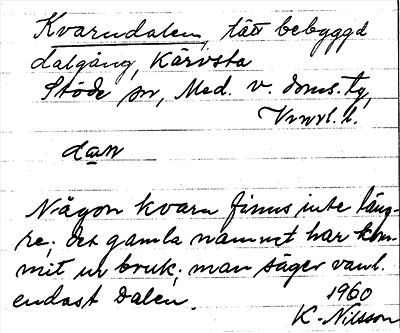 Kvarndalen, tätt bebyggd
dalgång, Kärvsta
Stöde sn, Med. v. doms. tg,
Vrnrl. l.
dan
Någon kvarn finns inte läng-
re; det gamla namnet har kom-
mit ur bruk; man säger vanl.
endast Dalen. 1960
K. Nilsson